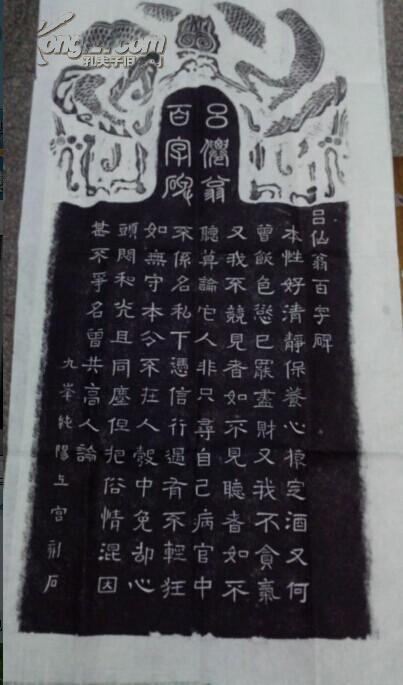 呂僊翁
百字碑
呂仙翁百字碑
本性好清靜保養心猿定酒又何
曾飲色慾已罷盡財又我不貪氣
又我不競見者如不見聽者如不
聽莫論它人非只尋自己病官中
不係名私下憑信行遇有不輕狂
如無守本分不在人彀中免却心
頭悶和光且同塵但把俗情混因
甚不爭名曾共高人論
九峯純陽上宮刻石
孔夫子旧